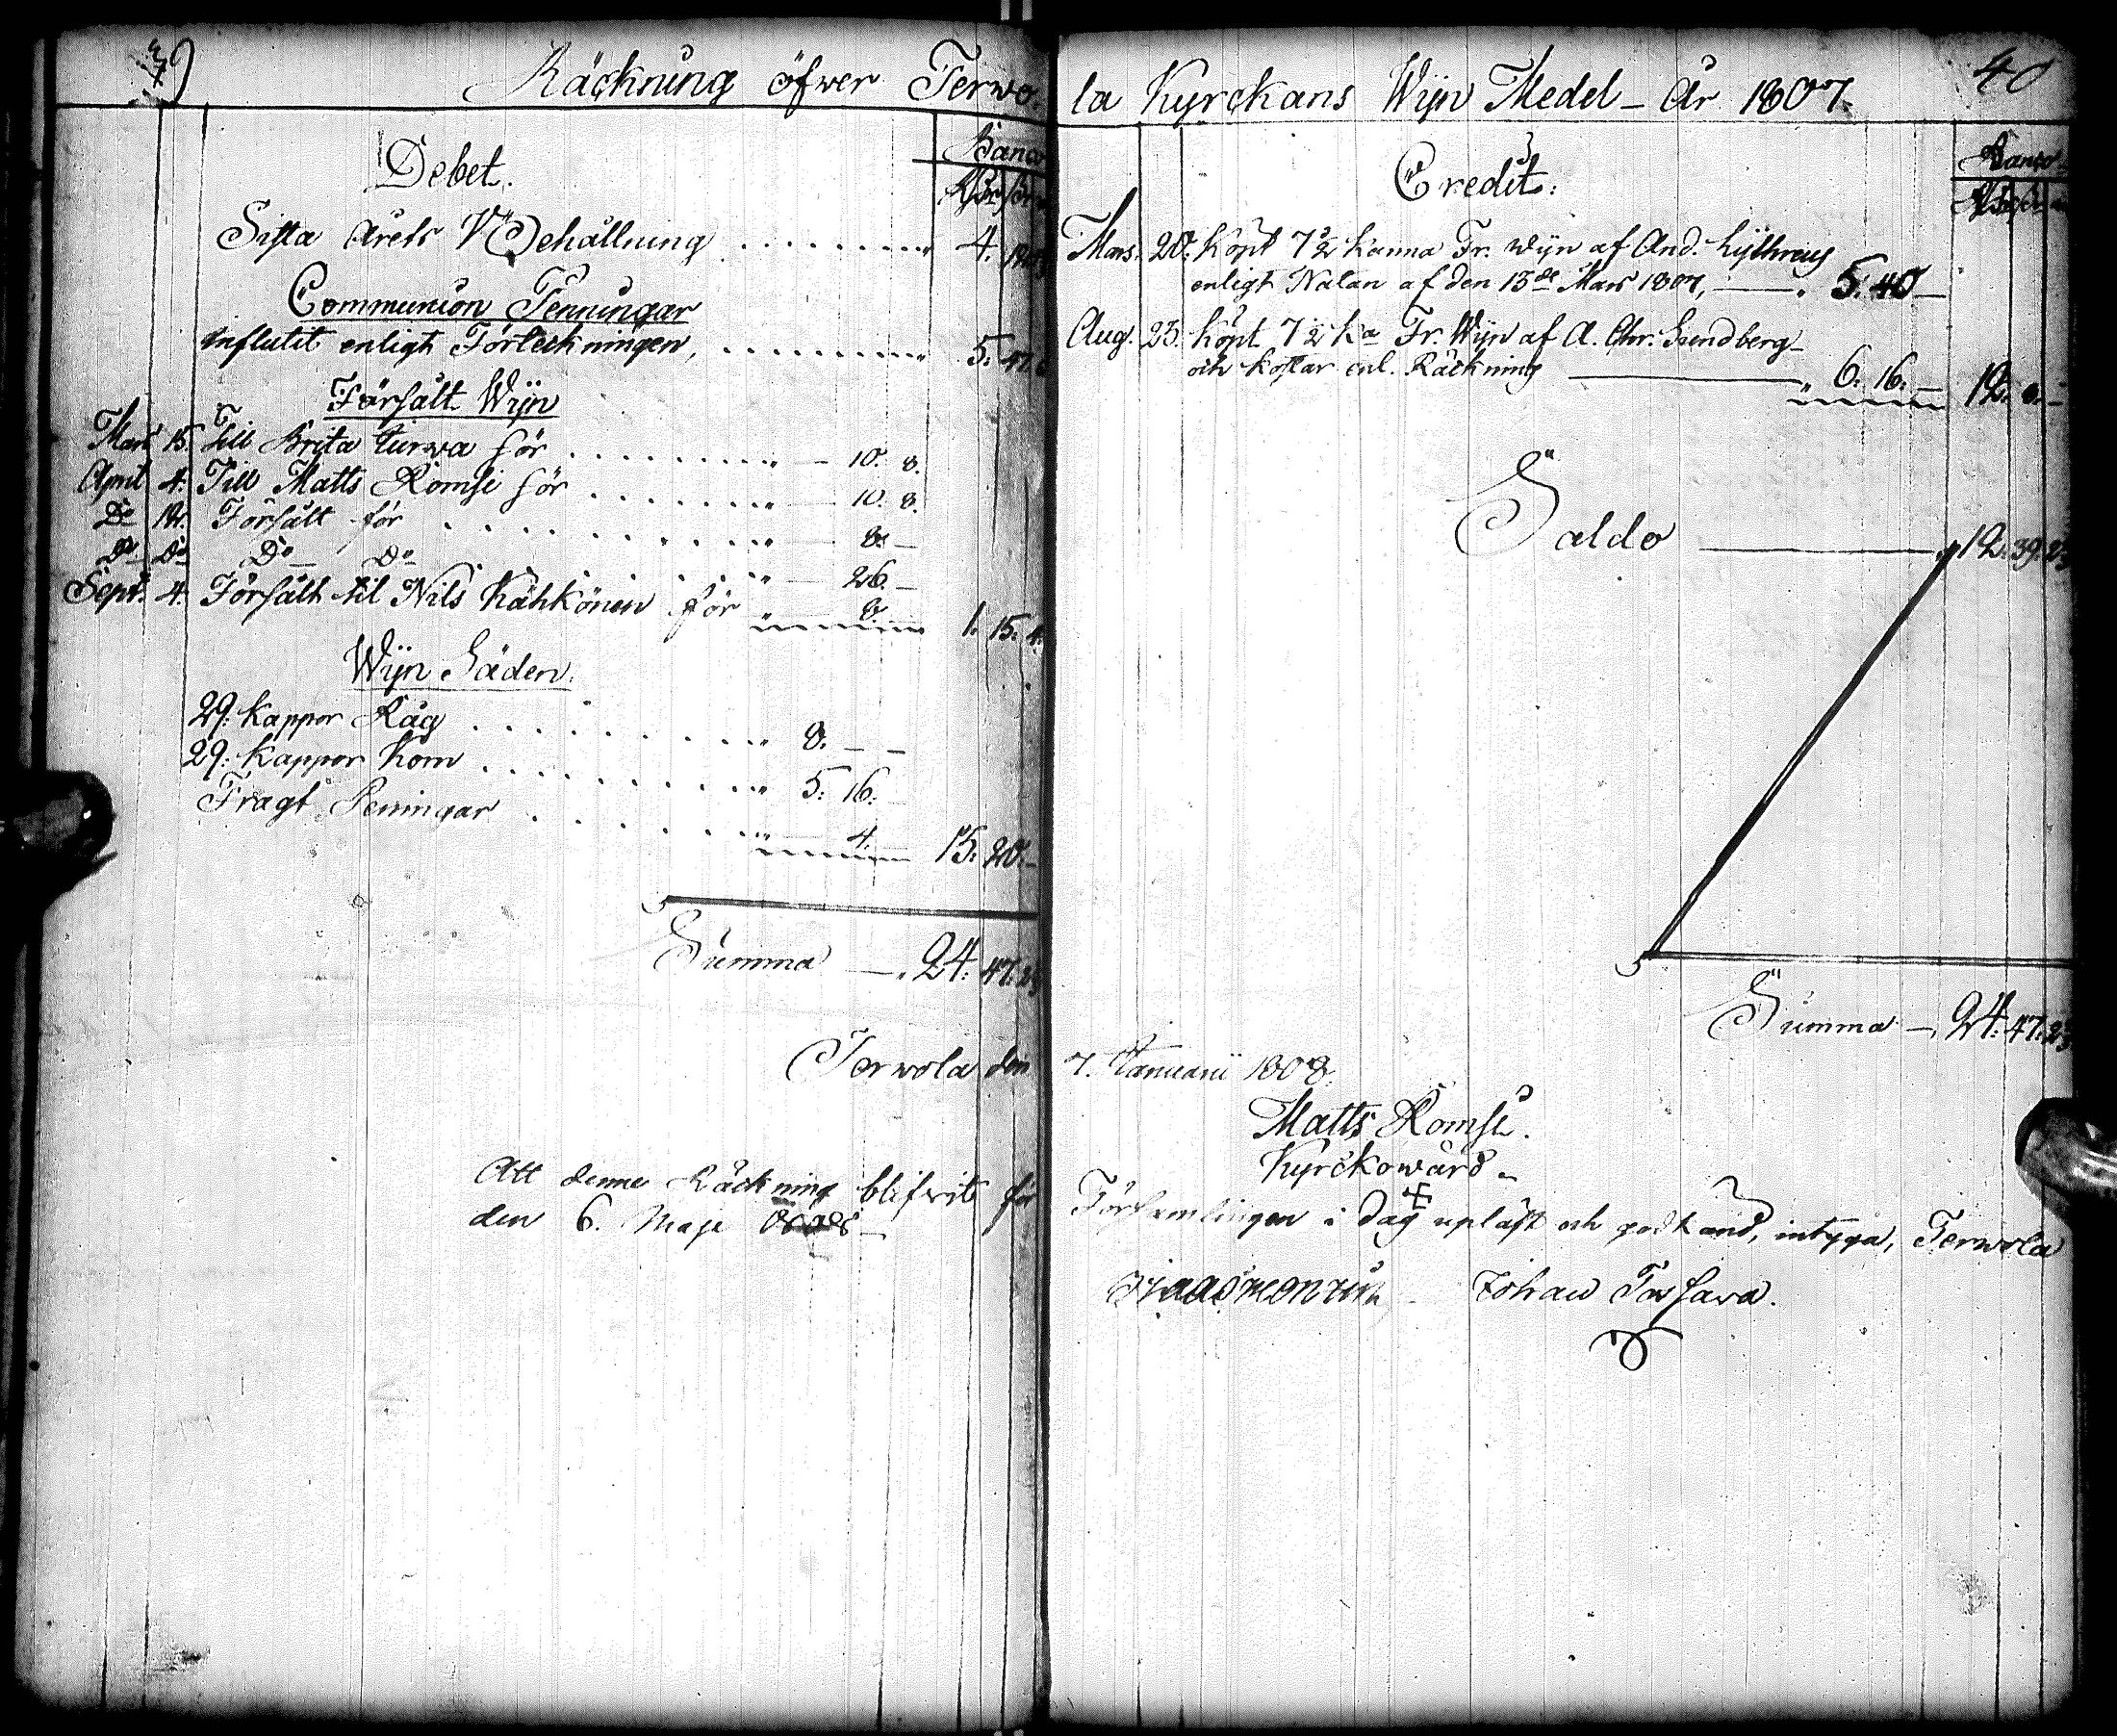 39
Räckning öfwer Terwo
Debet.
Banco
Sista årets Behållning 4.
Communion Penningar
influtit enligt Förteckningen, 5. 47.
Försålt Wijn
Mars 15. Till Brita Turwa för 10. 8.
April 4. Till Matts Romsi för 10. 8.
Do 12. Försålt för 8. —
Do Do Do Do 26. —
Sept. 4. Försålt til Nils Kähkönen för 8. 1. 15. 4.
Wijn Säden.
29. kappor Råg 8. — —
29. kappor Korn 5. 16.
Fragt Peningar 4. 15. 20. —
Summa — 24. 47.
Terwola den
Att denne Räckning blifwit för
den 6. Maji
40
la Kyrckans Wijn Medel – År 1807.
Credit.
Banco
Mars. 20. Köpt 7½ kanna Fr. wijn af And.
enligt af den 13de Mars 1807, — 5. 40 —
Aug. 23. Köpt 7½ ka Fr. Wijn af A. Chr. Sundberg
och kostar enl. Räckning — 6. 16. — 12. 8. —
Saldo — 12. 39.
Summa — 24. 47.
7. Januarii 1808.
Matts Romsi.
Kyrckowärd
Församlingen i dag upläst och godkänd, intyga, Terwola
Johan